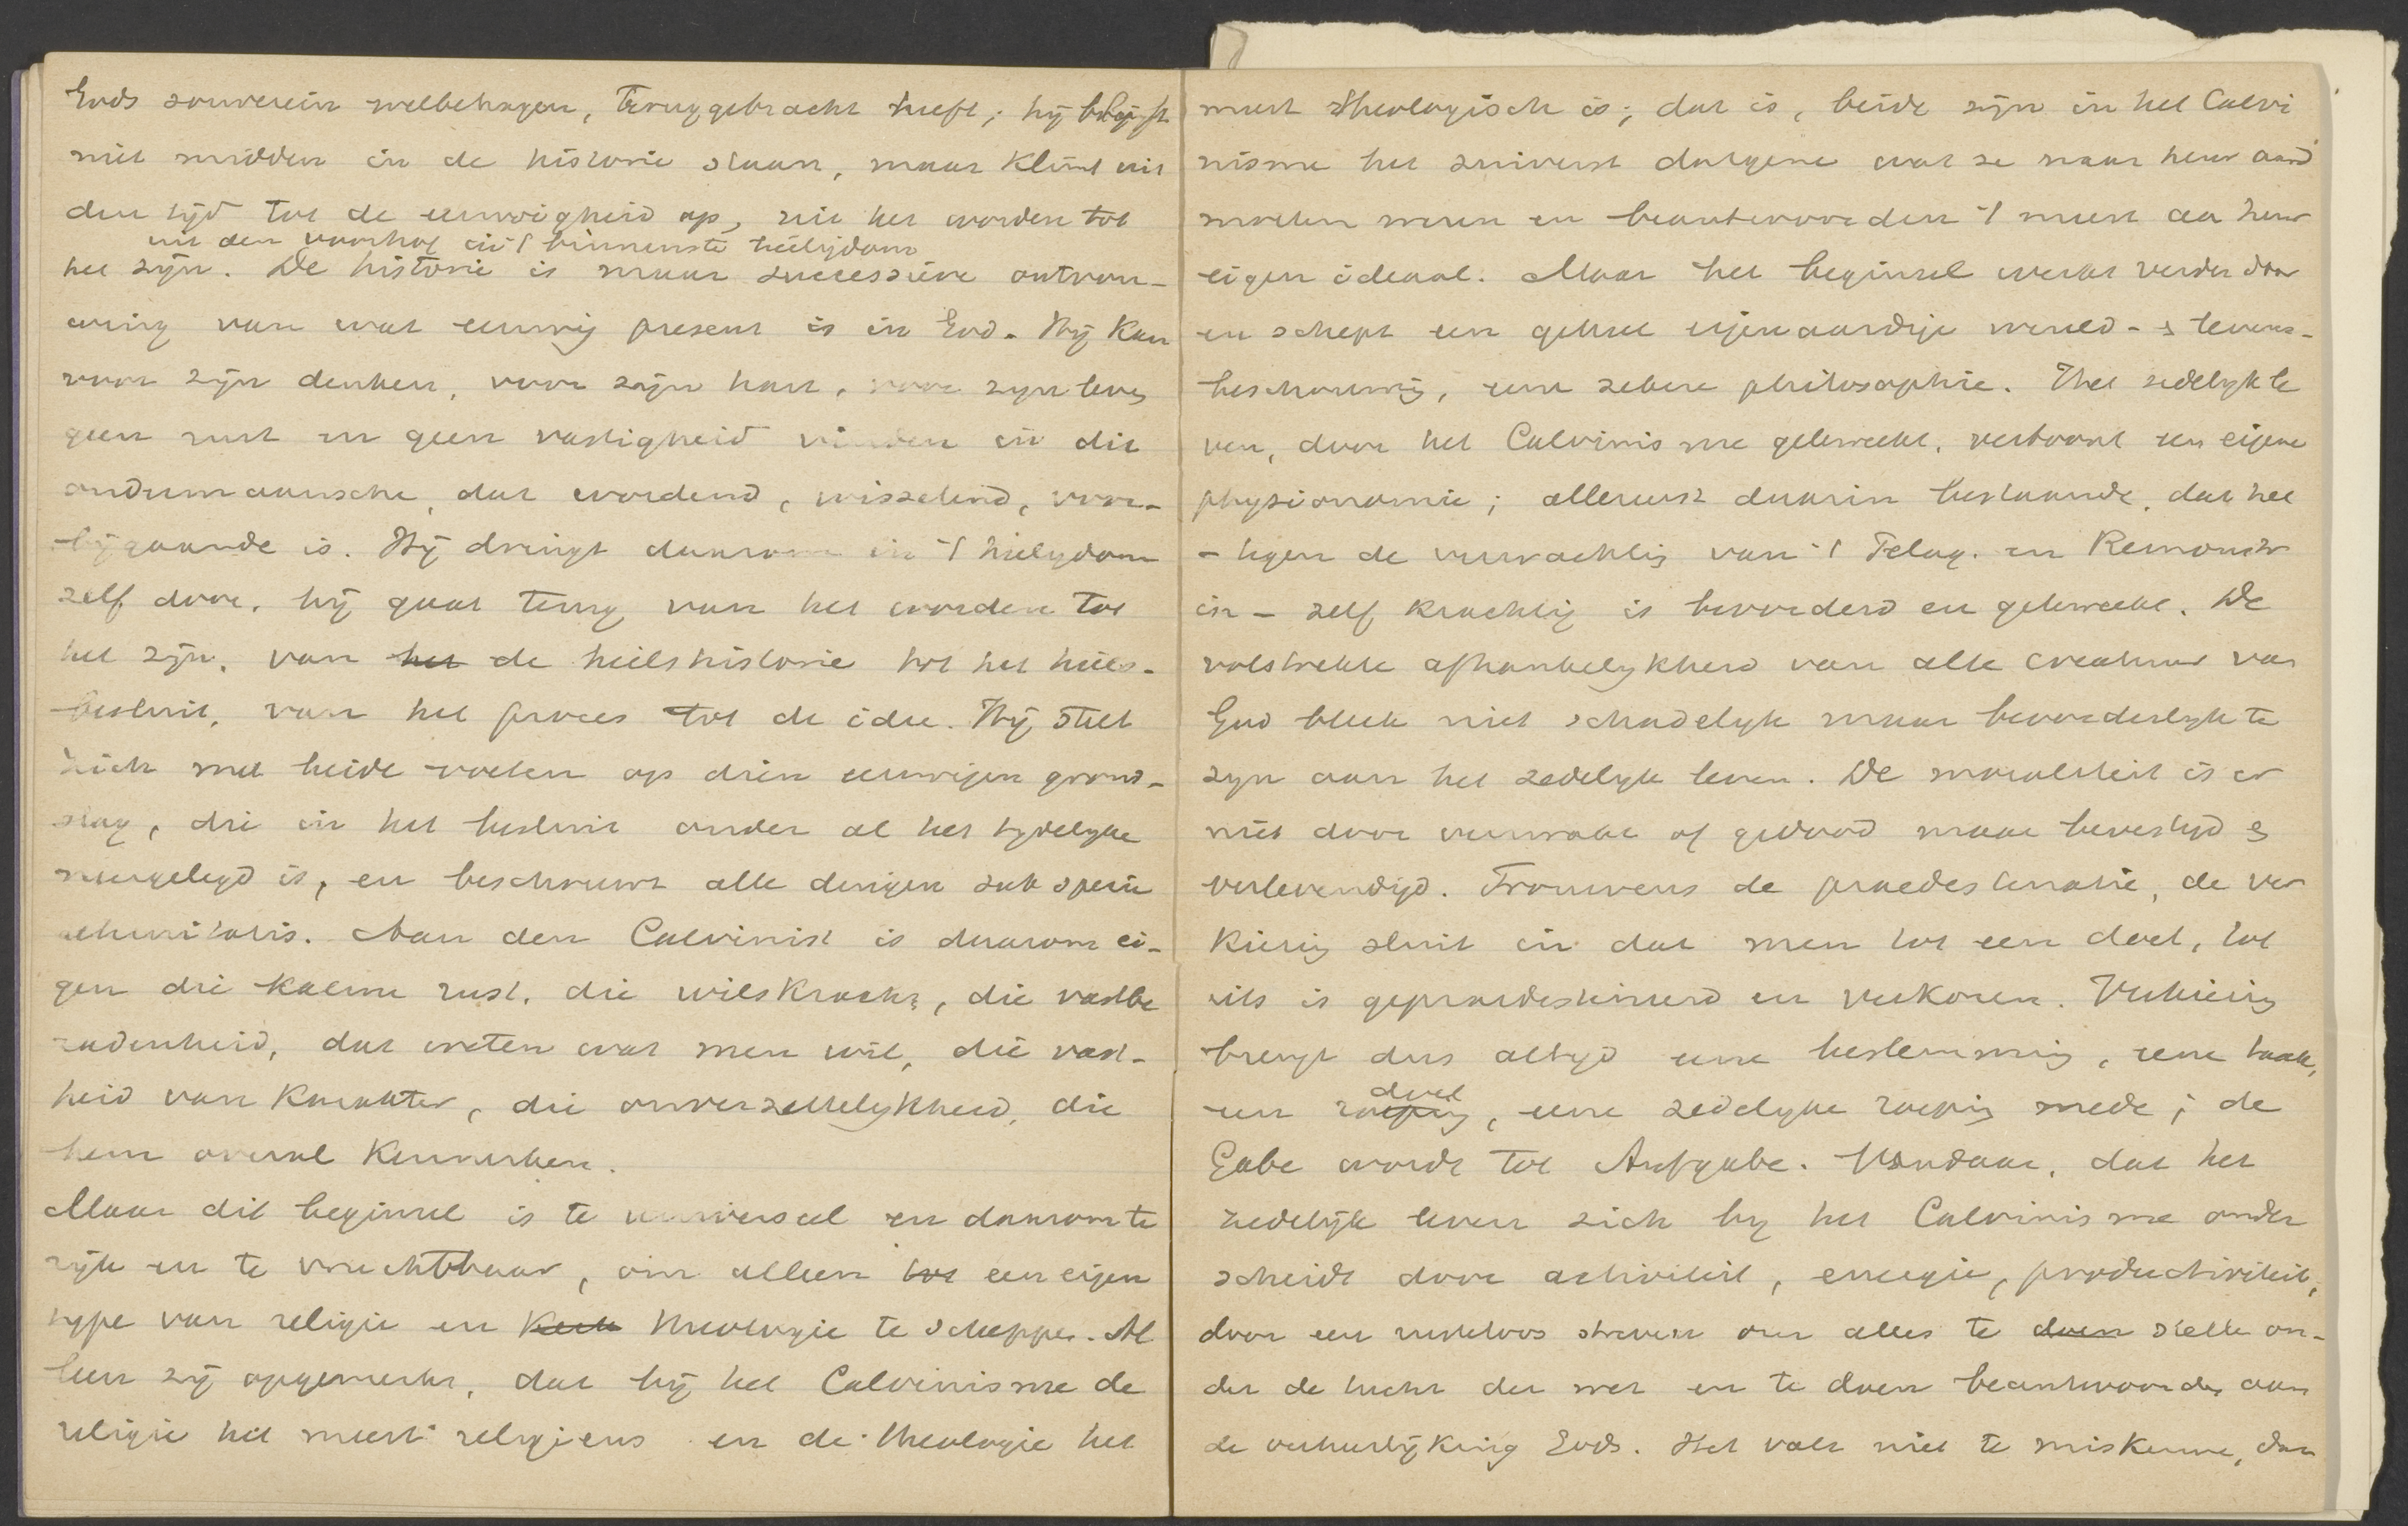 Gods souverein welbehagen, teruggebracht heeft; hij blijft
niet midden in de historie staan, maar klimt uit
den tijd tot de eeuwigheid op, uit het worden tot
uit den voorhof in 't binnenste heiligdom
het zijn. De historie is maar successieve ontvou-
wing van wat eeuwig present is in God. Hij kan
voor zijn denken, voor zijn hart, voor zyn leven
geen rust en geen vastigheid vinden in dit
ondermaansche, dat wordend, wisselend, voor-
bijgaande is. Hij dringt daarom in 't heiligdom
zelf door, hij gaat terug van het worden tot
het zijn, van het de heilshistorie tot het heils-
besluit, van het proces tot de idee. Hij stelt
zich met beide voeten op dien eeuwigen grond-
slag, die in het besluit onder al het tydelyke
neergelegd is, en beschouwt alle dingen sub specie
aeternitatis. Aan den Calvinist is daarom ei-
gen die kalme rust, die wilskracht, die vastbe
radenheid, dat weten wat men wil, die vast-
heid van karakter, die onverzettelykheid, die
hem overal kenmerken.
Maar dit beginsel is te universeel en daarom te
rijk en te vruchtbaar, om alleen tot een eigen
type van religie en kerk theologie te scheppen. Al
leen zij opgemerkt, dat bij het Calvinisme de
religie het meest religieus en de theologie het
meest theologisch is; dat is, beide zijn in het Calvi
nisme het zuiverst datgene wat ze naar heur aard
moeten wezen en beantwoorden 't meest aa heur
eigen ideaal. Maar het beginsel werkt verder door
en schept een geheel eigenaardige wereld- & levens-
beschouwing, eene zekere philosophie. Het zedelyk le
ven, door het Calvinisme gekweekt, vertoont een eigene
physionomie; allereerst daarin bestaande, dat het
- tegen de verwachting van 't Pelag. en Remonstr
in - zelf krachtig is bevorderd en gekweekt. De
volstrekte afhankelykheid van alle creatuur van
God bleek niet schadelyk maar bevorderlyk te
zyn aan het zedelyk leven. De moraliteit is er
niet door verzwakt of gedood maar bevestigd &
verlevendigd. Trouwens de praedestinatie, de ver
kiezing sluit in dat men tot een doel, tot
iets is gepraedestineerd en verkoren. Verkiezing
brengt dus altyd eene bestemming, eene taak,
doel
een roeping, eene zedelyke roeping mede; de
Gabe wordt tot Aufgabe. Vandaar, dat het
zedelijk leven zich by het Calvinisme onder
scheidt door activiteit, energie, productiviteit,
door een rusteloos streven om alles te doen stellen on-
der de tucht der wet en te doen beantwoorden aan
de verheerlijking Gods. Het valt niet te miskennen, dan